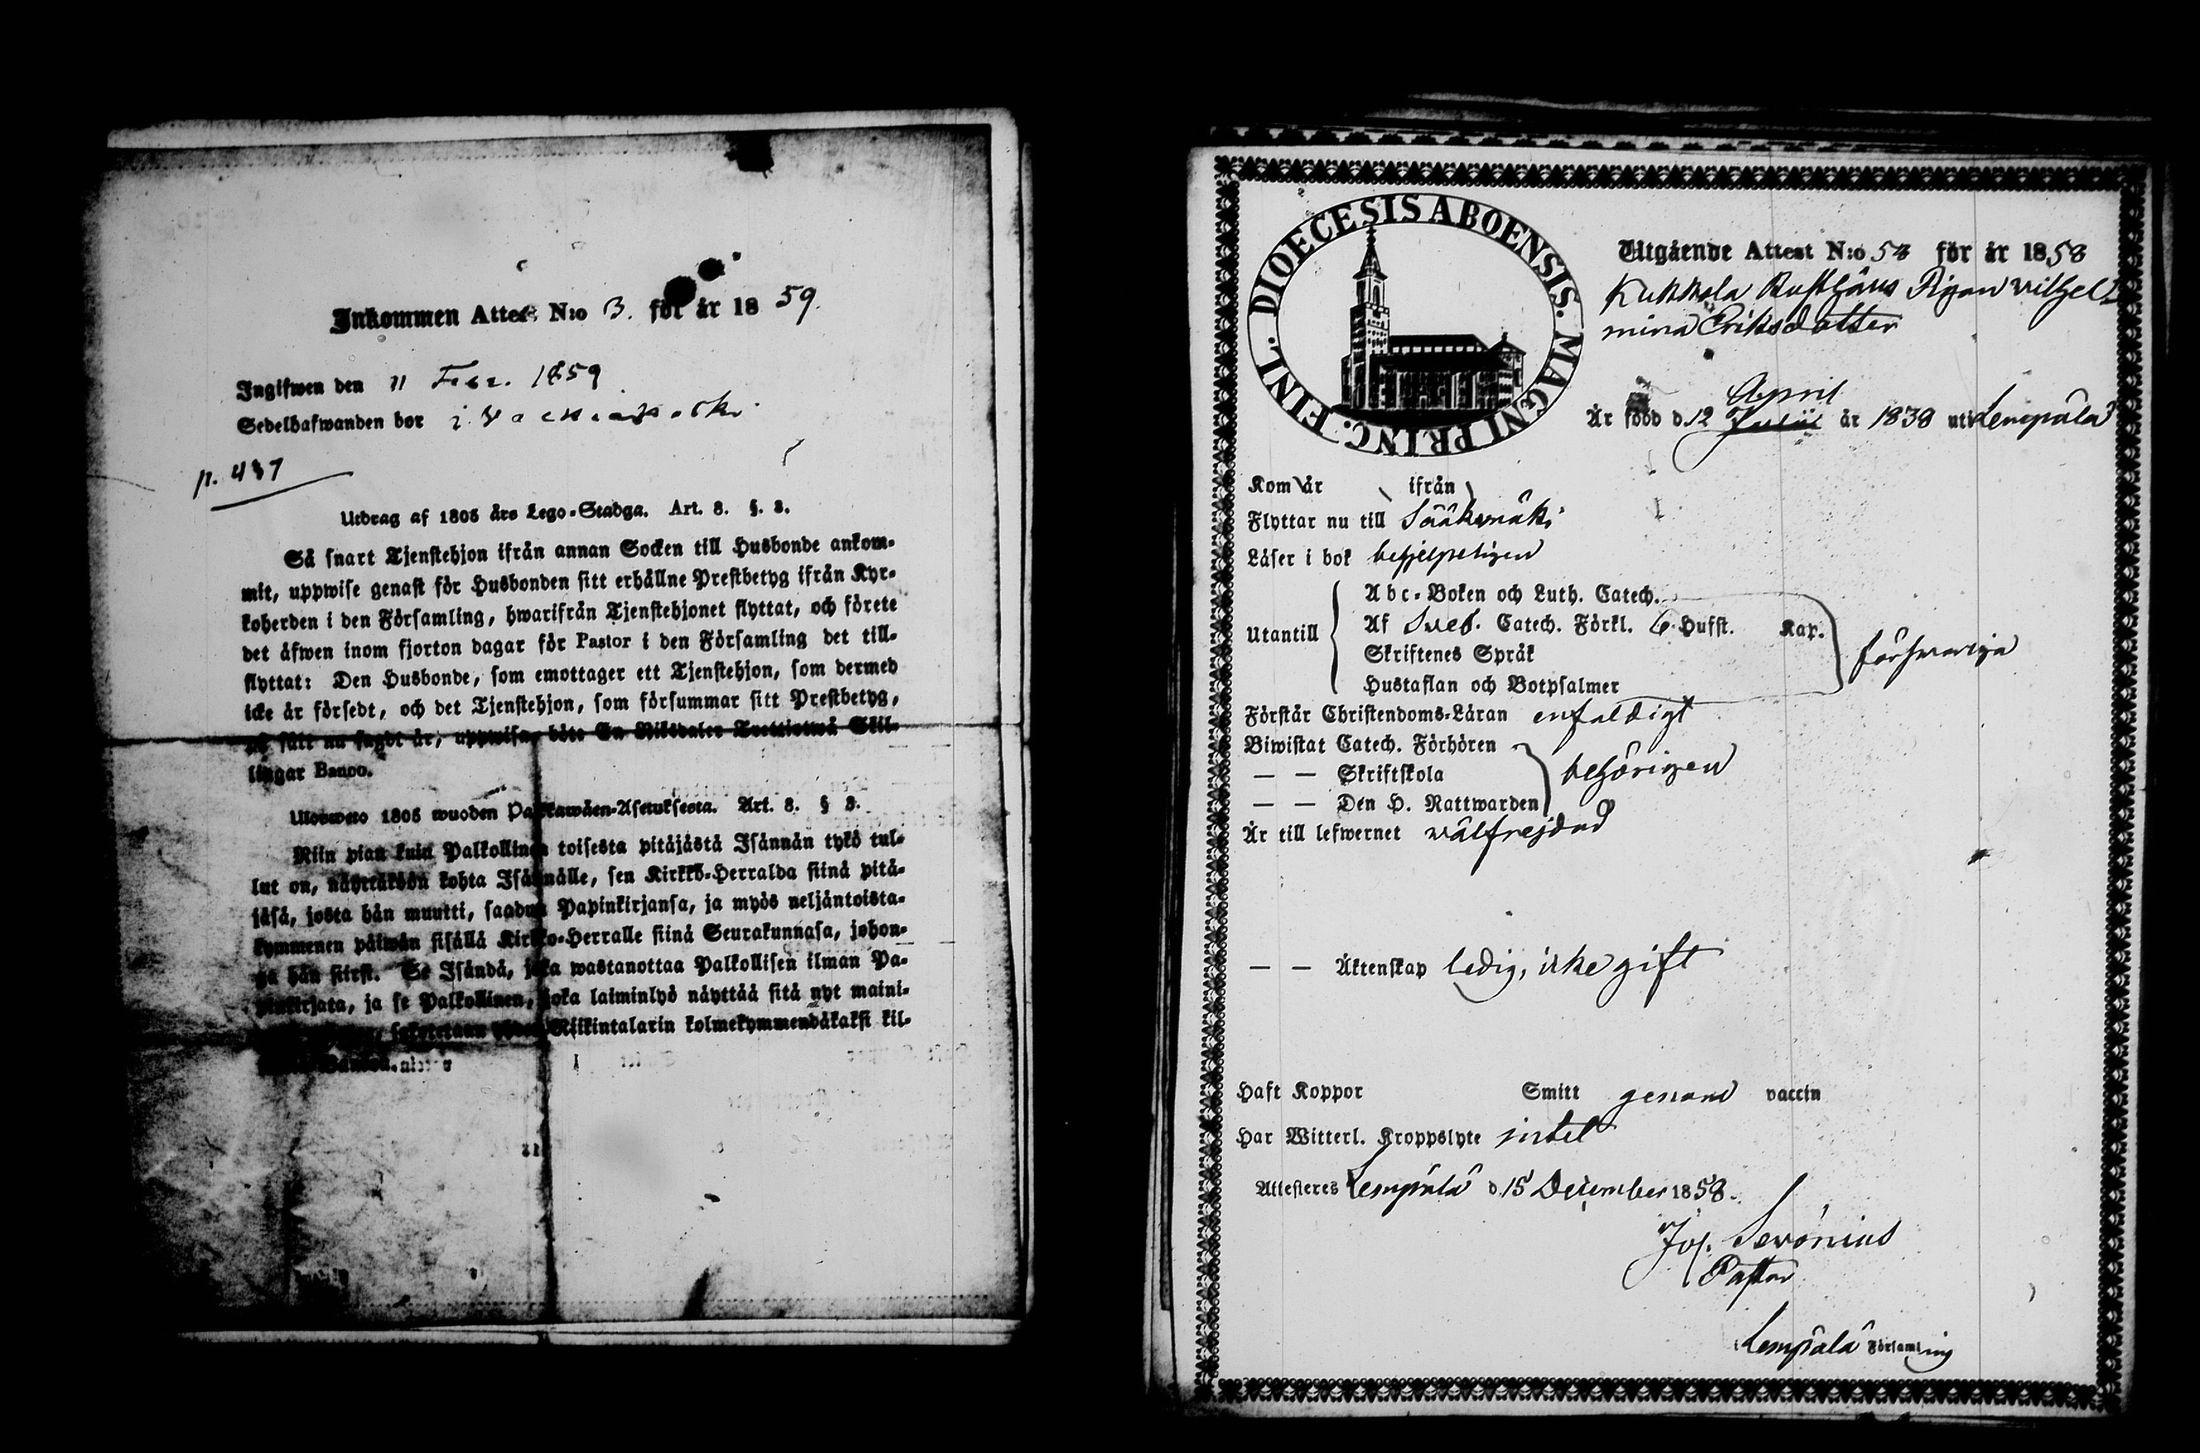 Inkommen Attest N:o 3. för år 1859.
Ingifwen den 11 Febr. 1859
Sedelhafwanden bor i
p. 437
Utdrag af 1805 års Lego-Stadga. Art. 8. §. 3.
Så snart Tjenstehjon ifrån annan Socken till Husbonde ankom-
mit, uppwise genast för Husbonden sitt erhållne Prestbetyg ifrån Kyr-
koherden i den Församling, hwarifrån Tjenstehjonet flyttat, och förete
det äfwen inom fjorton dagar för Pastor i den Församling det till-
flyttat: Den Husbonde, som emottager ett Tjenstehjon, som dermed
icke är försedt, och det Tjenstehjon, som försummar sitt Prestbetyg,
på sätt nu sagdt är, uppwisa, böte En Riksdaler Trettiotwå Skil-
lingar Banco.
Ulosweto 1805 wuoden Palkkawäen-Asetuksesta. Art. 8. § 3.
Niin pian kuin Palkollinen toisesta pitäjästä Isännän tykö tul-
lut on, näyttäköön kohta Isännälle, sen Kirkko-Herralda siinä pitä-
jäsä, josta hän muutti, saadun Papinkirjansa, ja myös neljäntoista-
kymmenen päiwän sisällä Kirkko-Herralle siinä Seurakunnasa, johon-
ga hän siirsi. Se Isändä, joka wastanottaa Palkollisen ilman Pa-
pinkirjata, ja se Palkollinen, joka laiminlyö näyttää sitä nyt maini-
Riikintalarin kolmekymmendäkaksi kil-
DIOECESIS ABOENSIS. MAGNI PRINC. FINL.
Utgående Attest N:o 58 för år 1858
Kukkola Rusthåus Pigan Vilhel
mina Eriksdotter
April
Är född d. 12 Julii år 1838 uti Lempälä
Kom år ifrån
Flyttar nu till Sääksmäki
Läser i bok behjelpeligen
Utantill
Abc-Boken och Luth. Catech.
Af Sveb. Catech. Förkl. 6 Hufst. Kap.
Skriftenes Språk
Hustaflan och Botpsalmer
försvarliga
Förstår Christendoms-Läran enfaldigt
Biwistat Catech. Förhören
— — Skriftskola
— — Den H. Nattwarden
behörigen
Är till lefwernet välfrejdad
— — Äktenskap ledig, icke gift
Haft Koppor Smitt genom vaccin
Har Witterl. Kroppslyte intet
Attesteres Lempälä d. 15 December 1858.
Jos. Serónius
Pastor
i Lempälä Församling